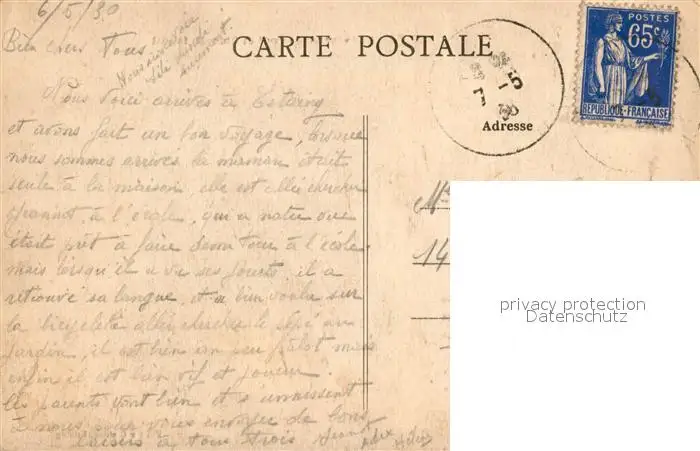 6/5/30
Bien chers Tous
CARTE POSTALE
POSTES
65c
RÉPUBLIQUE FRANÇAISE
Adresse
Nous voici arrivés à
et avons fait un bon voyage, lorsque
nous sommes arrivés la maman était
seule à la maison elle est allée chercher
à l'école, qui a
était prêt à faire à l'école
mais lorsqu'il a vu ses jouets, il a
retrouvé sa langue, et a bien voulu sur
la bicyclette aller chercher le pépé au
jardin, il est bien un peu pâlot mais
enfin il est bien vif et joueur.
les parents vont bien et s'unissent
à nous pour vous envoyer de bons
baisers à tous trois
14
privacy protection
Datenschutz